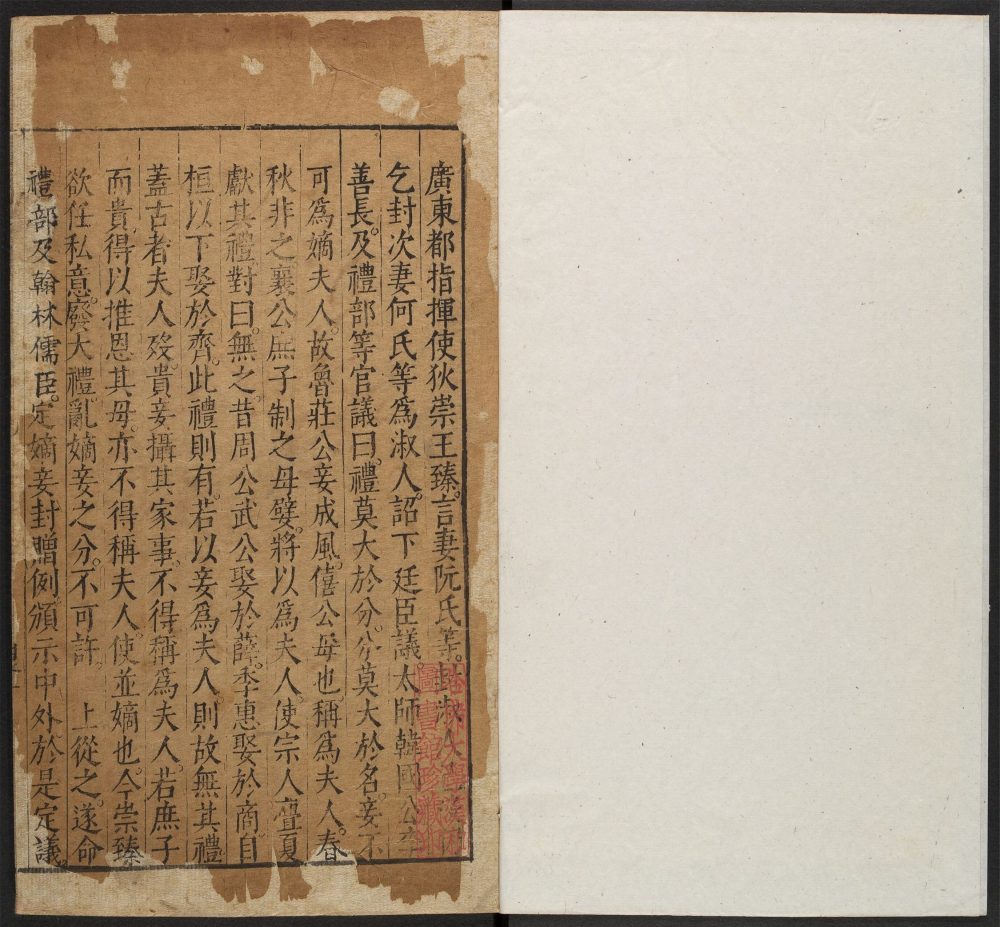 廣東都指揮使狄崇王臻。言妻阮氏等。封淑人
乞封次妻何氏等爲淑人。詔下廷臣議。太師韓國公李
善長。及禮部等官議曰。禮莫大於分。分莫大於名。妾不
可爲嫡夫人。故魯莊公妾成風。僖公母也。稱爲夫人。春
秋非之。襄公庶子制之母嬖。將以爲夫人。使宗人亹夏
獻其禮。對曰。無之。昔周公武公娶於薛。季惠娶於商。自
桓以下娶於齊。此禮則有。若以妾爲夫人。則故無其禮
蓋古者夫人歿。貴妾攝其家事。不得稱爲夫人。若庶子
而貴。得以推恩其母。亦不得稱夫人。使並嫡也。今崇臻
欲任私意。廢大禮。亂嫡妾之分。不可許。 上從之。遂命
禮部及翰林儒臣。定嫡妾封贈例。頒示中外。於是定議。
圖書館珍藏印